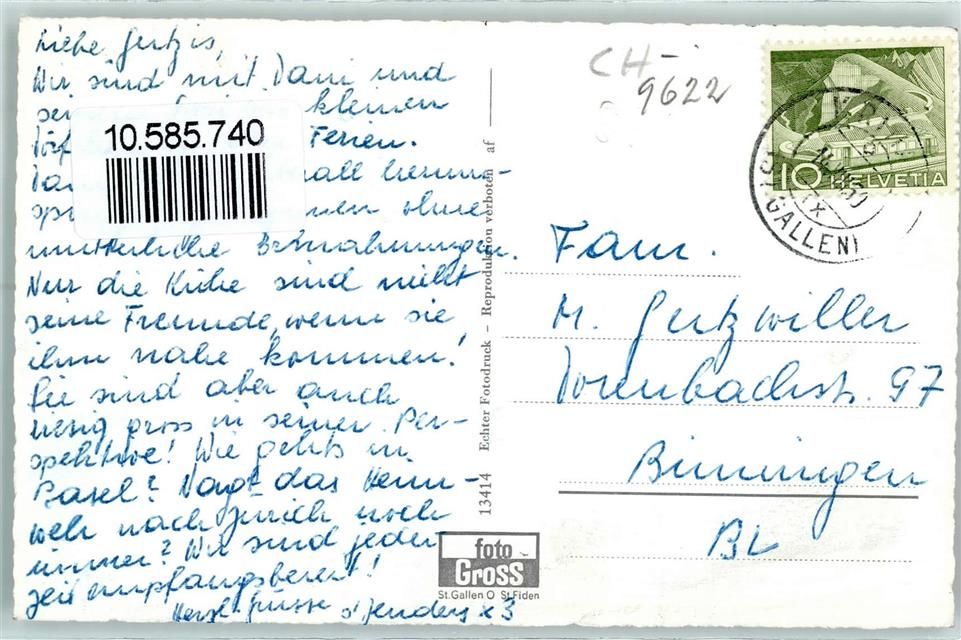 Liebe Gertzis,
Wir sind mit Dani und
kleinen
Ferien.
10.585.740
mütterliche Ermahnungen.
Nur die Kühe sind nicht
seine Freunde, wenn sie
ihm nahe kommen!
Sie sind aber auch
riesig gross in seiner Per-
spektive! Wie gehts in
Basel? Nagt das Heim-
weh nach Zürich noch
immer? Wir sind jeder-
zeit empfangsbereit!
Herzl. Grüsse
x 3
13414 Echter Fotodruck – Reproduktion verboten af
foto
Gross
St.Gallen O St.Fiden
CH-
9622
10 HELVETIA
(ST. GALLEN)
Fam.
M. Gertzwiller
Dorenbachstr. 97
Binningen
BL